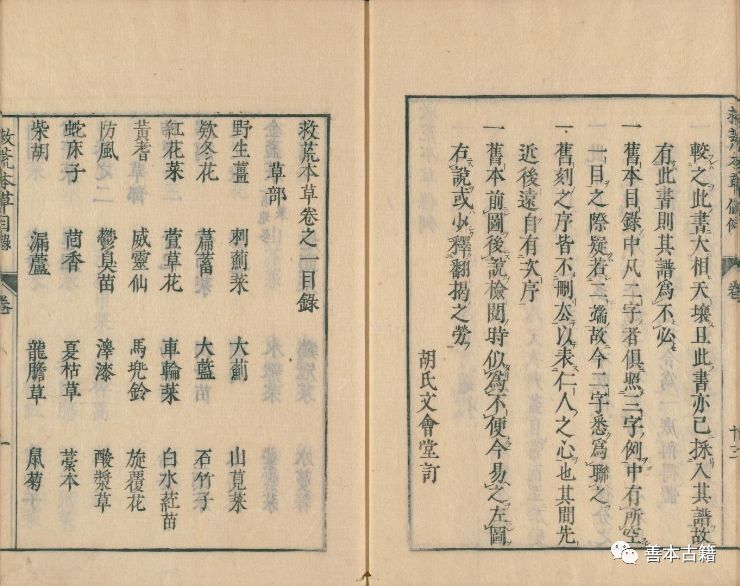 較之此書大相天壤且此書亦已採入其譜故
有此書則其譜爲不必
一舊本目錄中凡二字者俱照三字例中有所空
一目之際疑若二端故今二字悉爲聯之
一舊刻之序皆不刪去以表仁人之心也其間先
近後遠自有次序
一舊本前圖後說檢閱時似爲不便今易之左圖
右說或少釋翻揭之勞
胡氏文會堂訂
救荒本草卷之一目錄
草部
野生薑 刺薊菜 大薊 山莧菜
欵冬花 萹蓄 大藍 石竹子
紅花菜 萱草花 車輪菜 白水葒苗
黃耆 威靈仙 馬兜鈴 旋覆花
防風 鬱臭苗 澤漆 酸漿草
蛇床子 茴香 夏枯草 藁本
柴胡 漏蘆 龍膽草 鼠菊
救荒本草目錄 卷 一
善本古籍